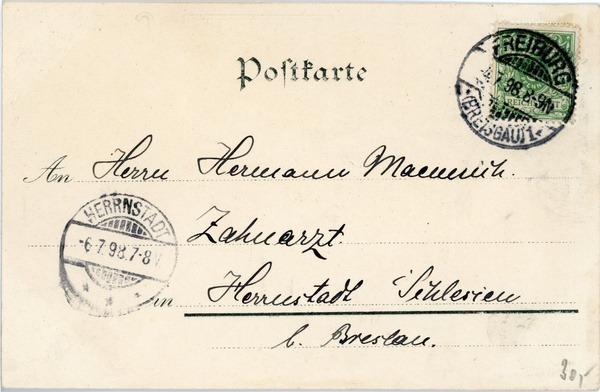 FREIBURG
7.98.8-9N
(BREISGAU)1.
REICHSPOST
Postkarte
An Herrn Hermann
Zahnarzt.
in Herrnstadt Schlesien
b. Breslau.
HERRNSTADT
-6.7.98.7-8V
30,-